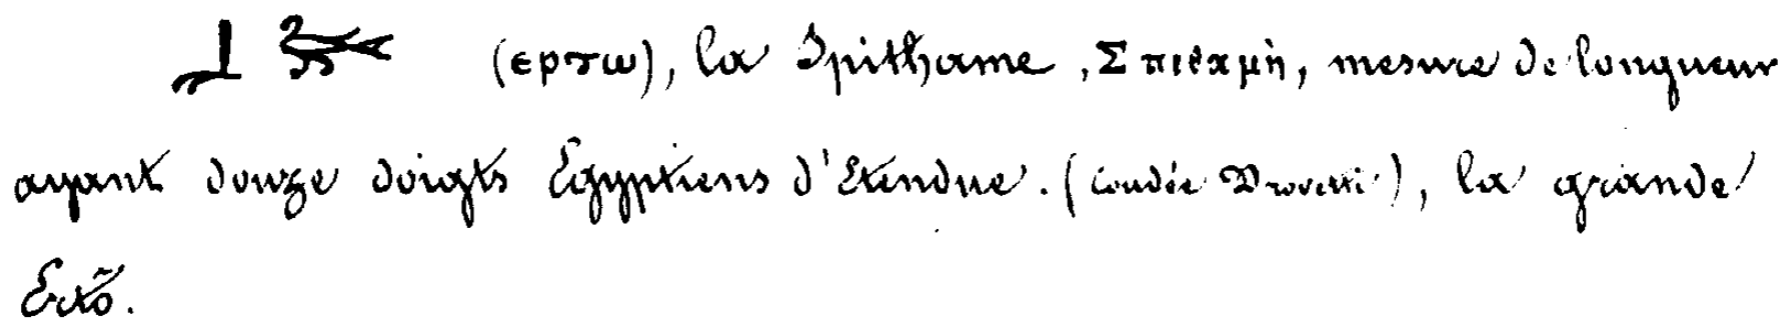 (ερτω), la Spithame, Σπιθαμὴ, mesure de longueur
ayant douze doigts Égyptiens d'Étendue. (Coudée Drovetti), la grande
Ertô.